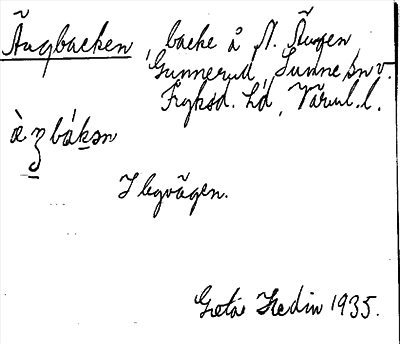 Ängbacken, backe å N. Ängen,
Gunnerud, Sunne sn v.
Fryksd. hd, Värml. l.
àʒbákən
I lagvägen.
Greta Hedin 1935.